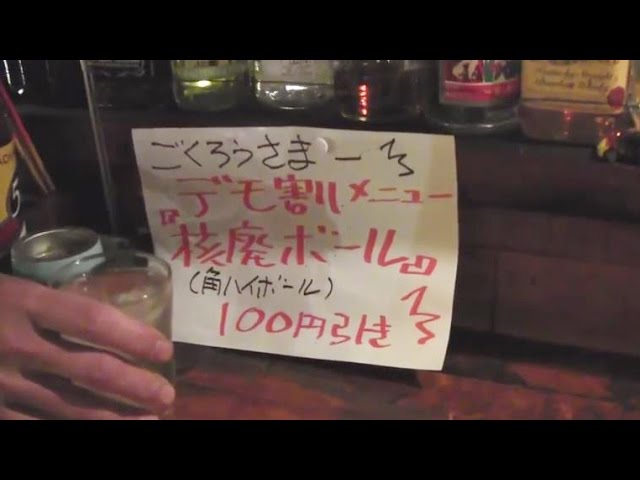 ごくろうさまー
デモ割メニュー
『核廃ボール』
(角ハイボール)
100円引き